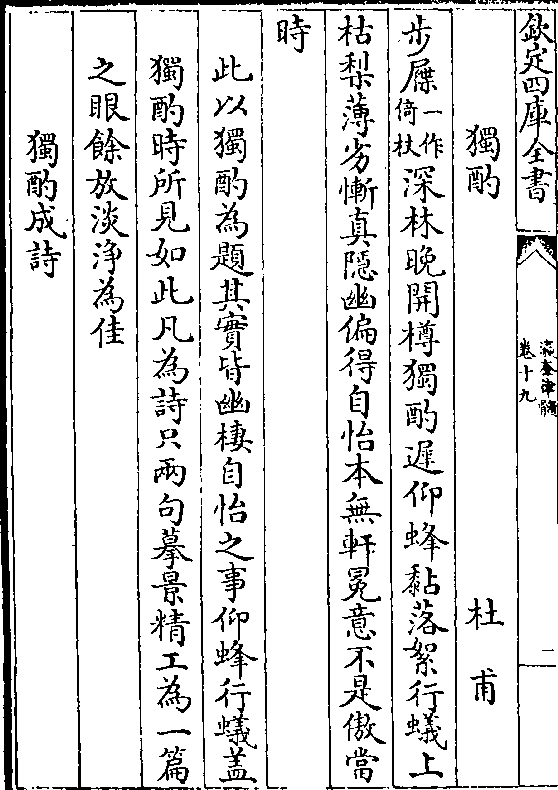 欽定四庫全書
瀛奎律髓
卷十九
二
獨酌　杜甫
步屧一作倚杖深林晚開樽獨酌遲仰蜂黏落絮行蟻上
枯梨薄劣慚真隱幽偏得自怡本無軒冕意不是傲當
時
此以獨酌為題其實皆幽棲自怡之事仰蜂行蟻盖
獨酌時所見如此凡為詩只兩句摹景精工為一篇
之眼餘放淡淨為佳
獨酌成詩